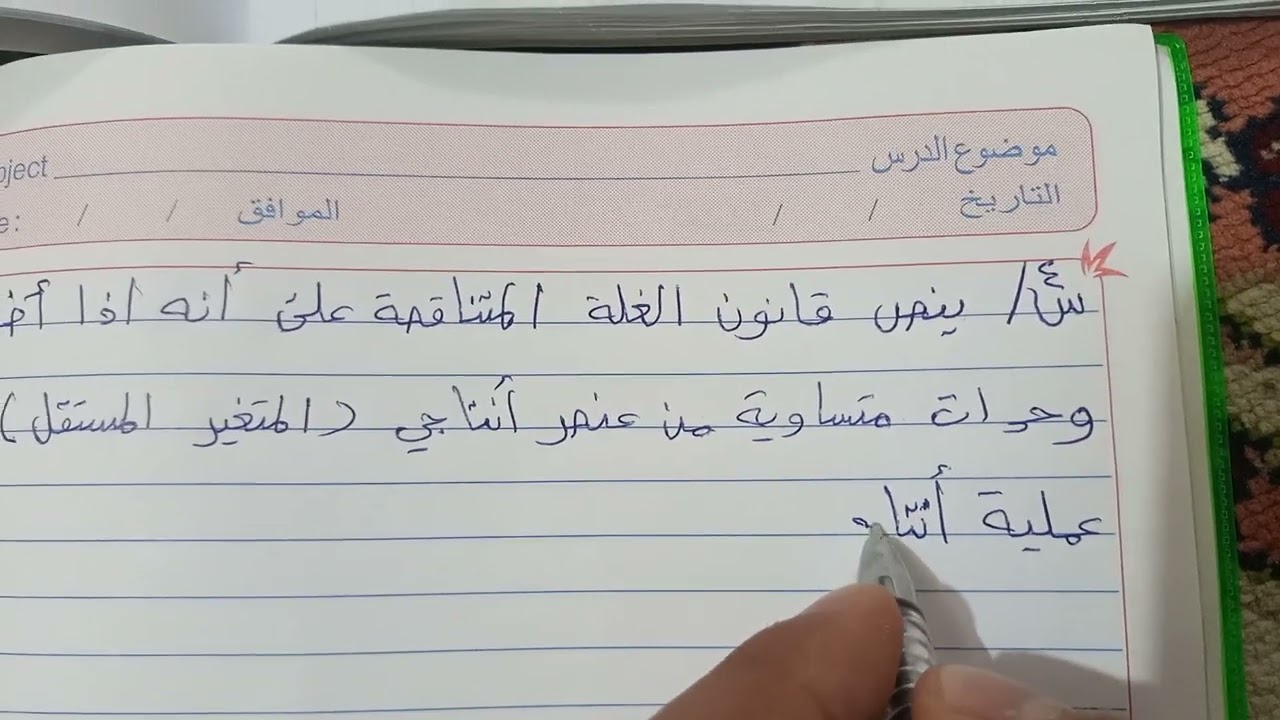 موضوع الدرس bject
التاريخ / / الموافق / / e:
س٤/ ينص قانون الغلة المتناقصة على أنه اذا أض
وحدات متساوية من عنصر أنتاجي (المتغير المستقل)
عملية أنتا